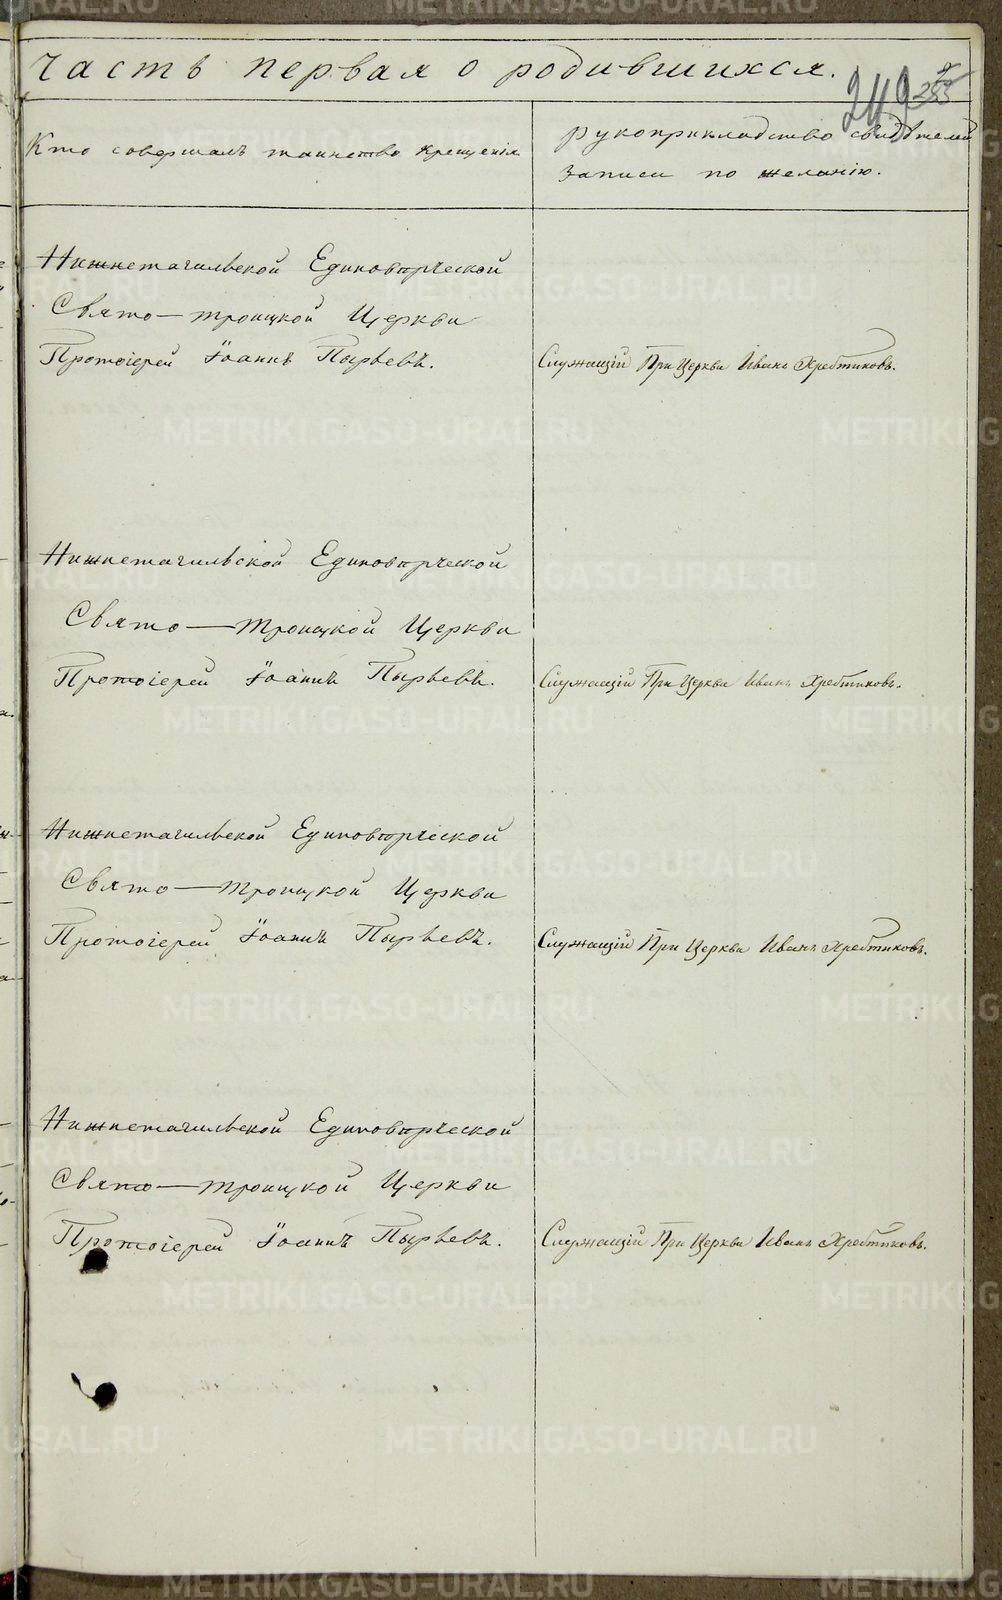 Часть первая о родившихся.
249 353
Кто совершалъ таинство крещенія
рукоприкладство свидѣтелей
записи по желанію.
Нижнетагильской Единовѣрческой
Свято-Троицкой Церкви
Протоіерей Іоаннъ Пырьевъ.
Служащій При Церкви Иванъ Хребтиковъ.
Нижнетагильской Единовѣрческой
Свято-Троицкой Церкви
Протоіерей Іоаннъ Пырьевъ.
Служащій При Церкви Иванъ Хребтиковъ.
Нижнетагильской Единовѣрческой
Свято-Троицкой Церкви
Протоіерей Іоаннъ Пырьевъ.
Служащій При Церкви Иванъ Хребтиковъ.
Нижнетагильской Единовѣрческой
Свято-Троицкой Церкви
Протоіерей Іоаннъ Пырьевъ.
Служащій При Церкви Иванъ Хребтиковъ.
METRIKI.GASO-URAL.RU